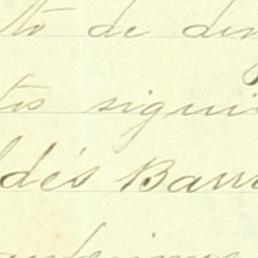 to de din
tes sigui
ldés Barr